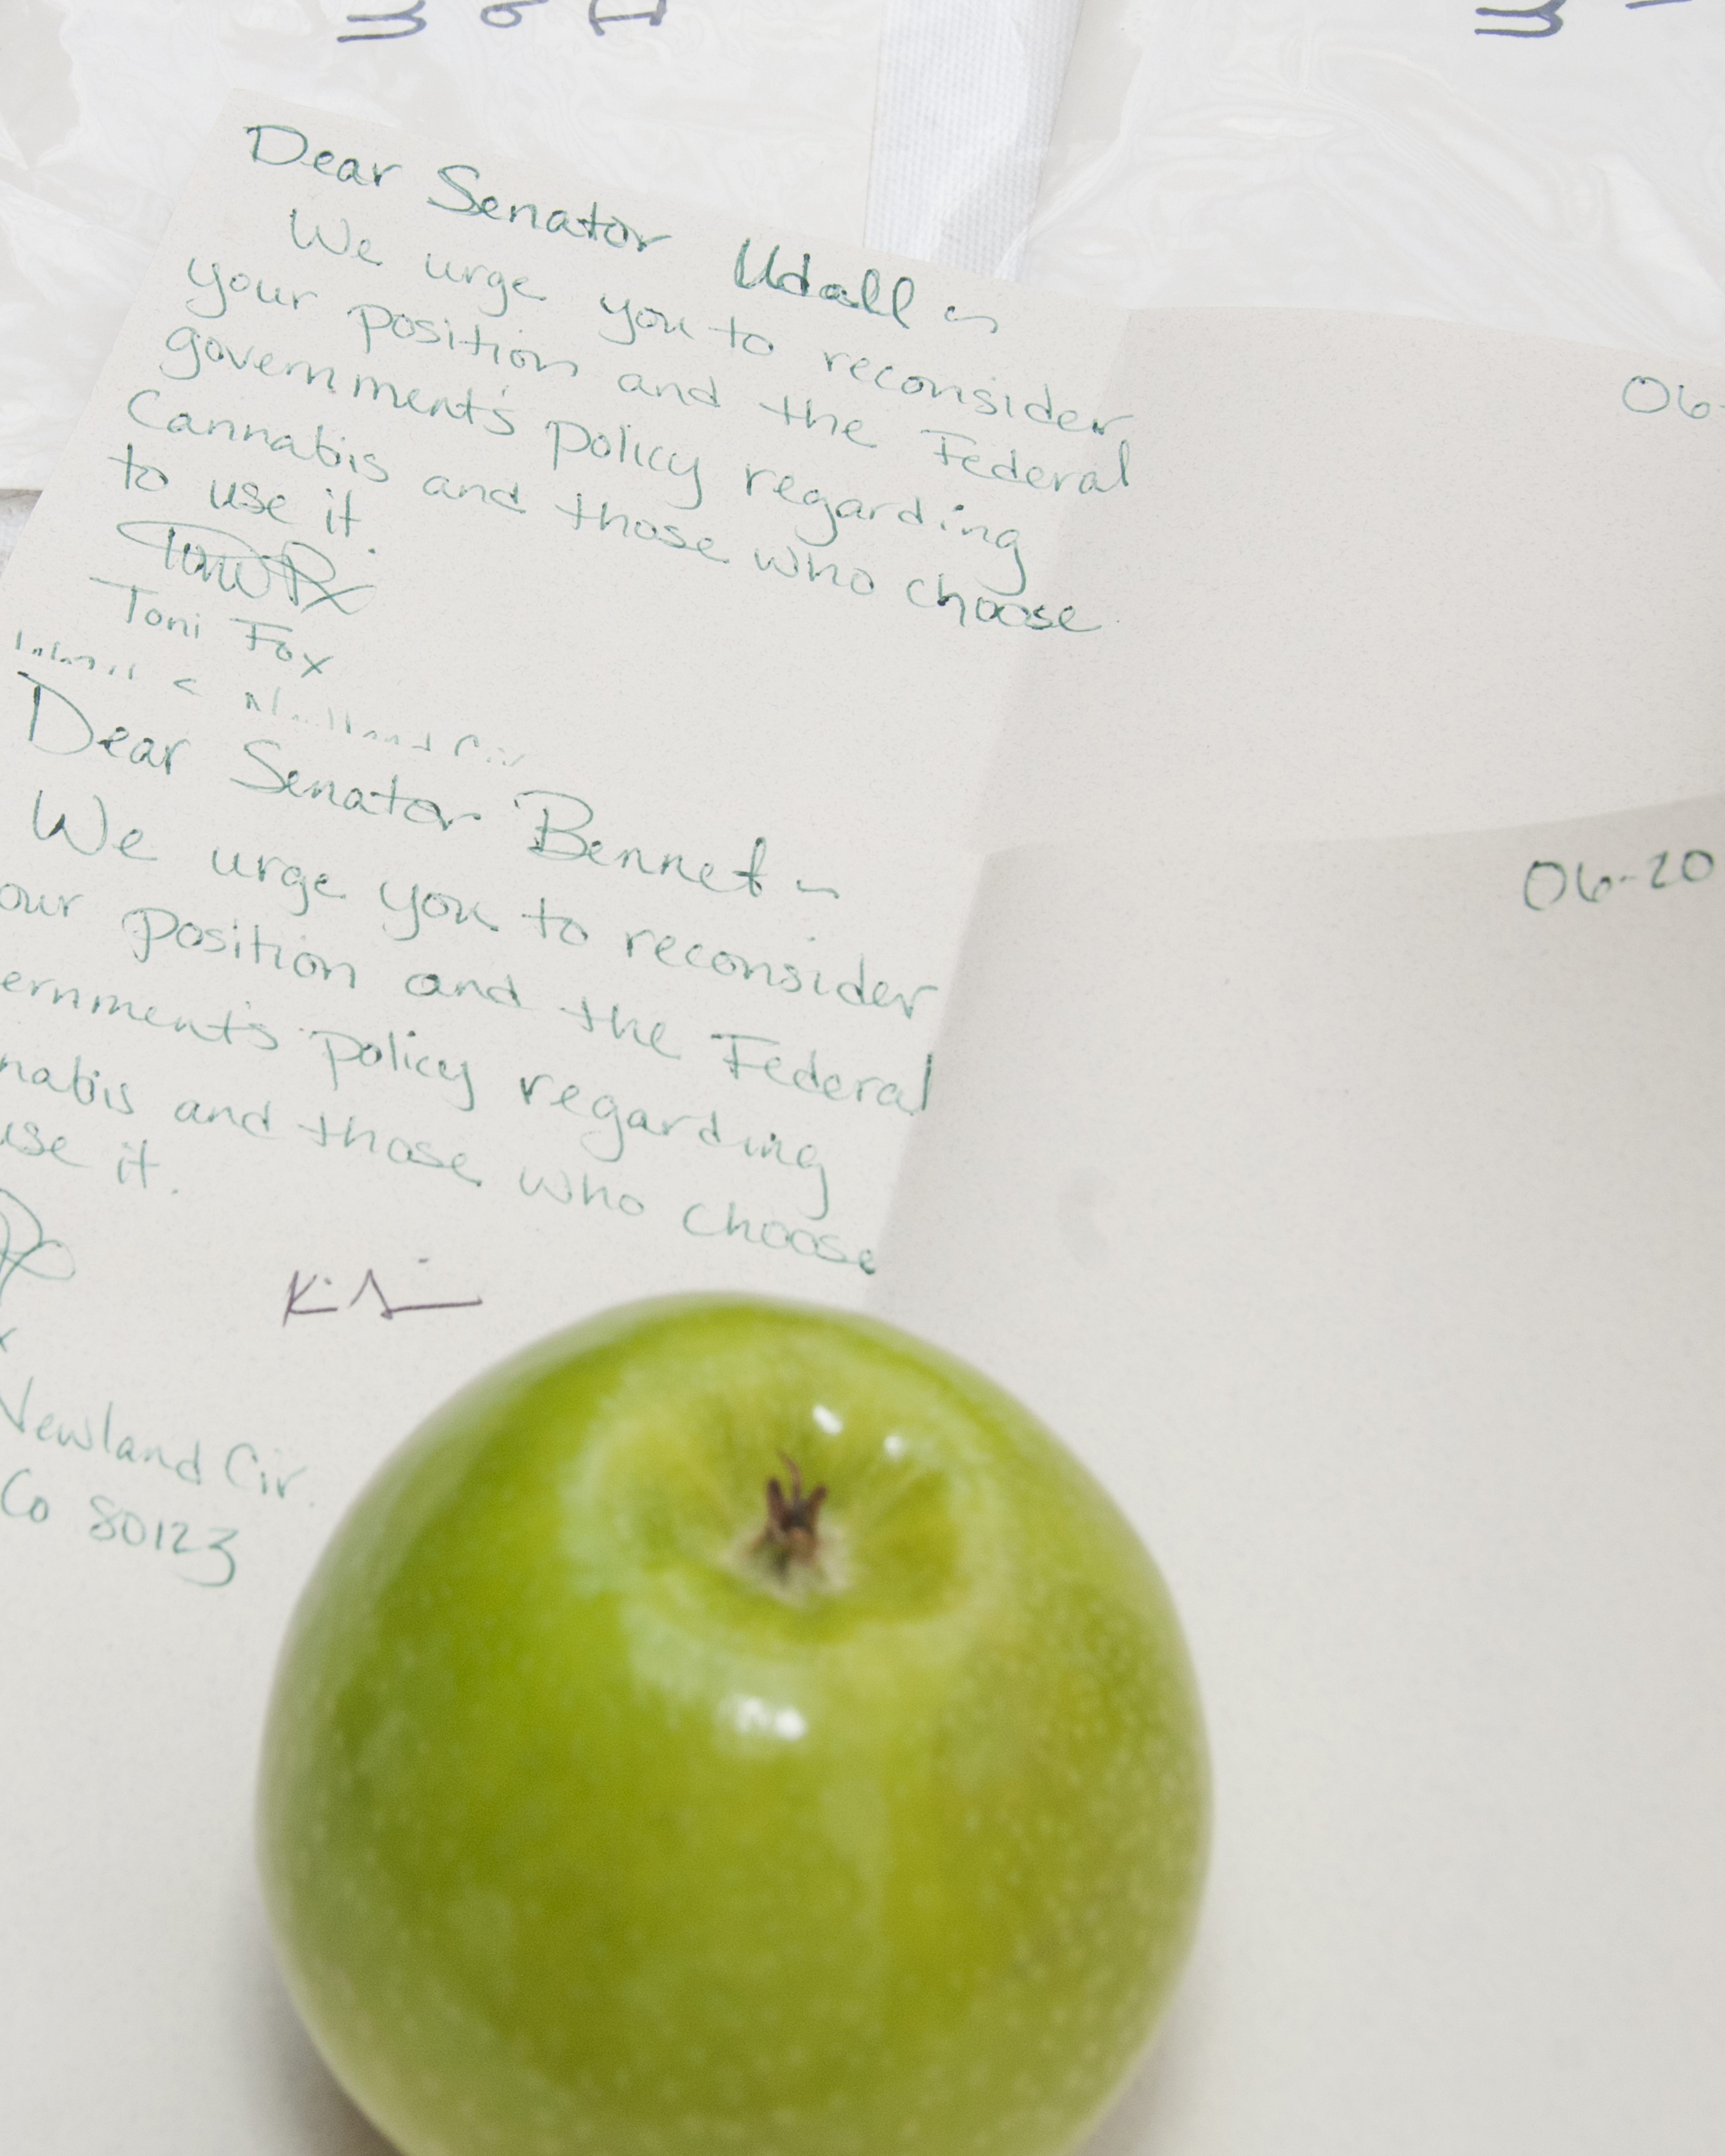 Dear Senator Udall ~
06-
We urge you to reconsider
your position and the Federal
government's policy regarding
Cannabis and those who choose
to use it.
Toni Fox
Dear Senator Bennet ~
06-20
We urge you to reconsider
our position and the Federal
ernment's policy regarding
nabis and those who choose
use it.
Newland Cir.
Co 80123